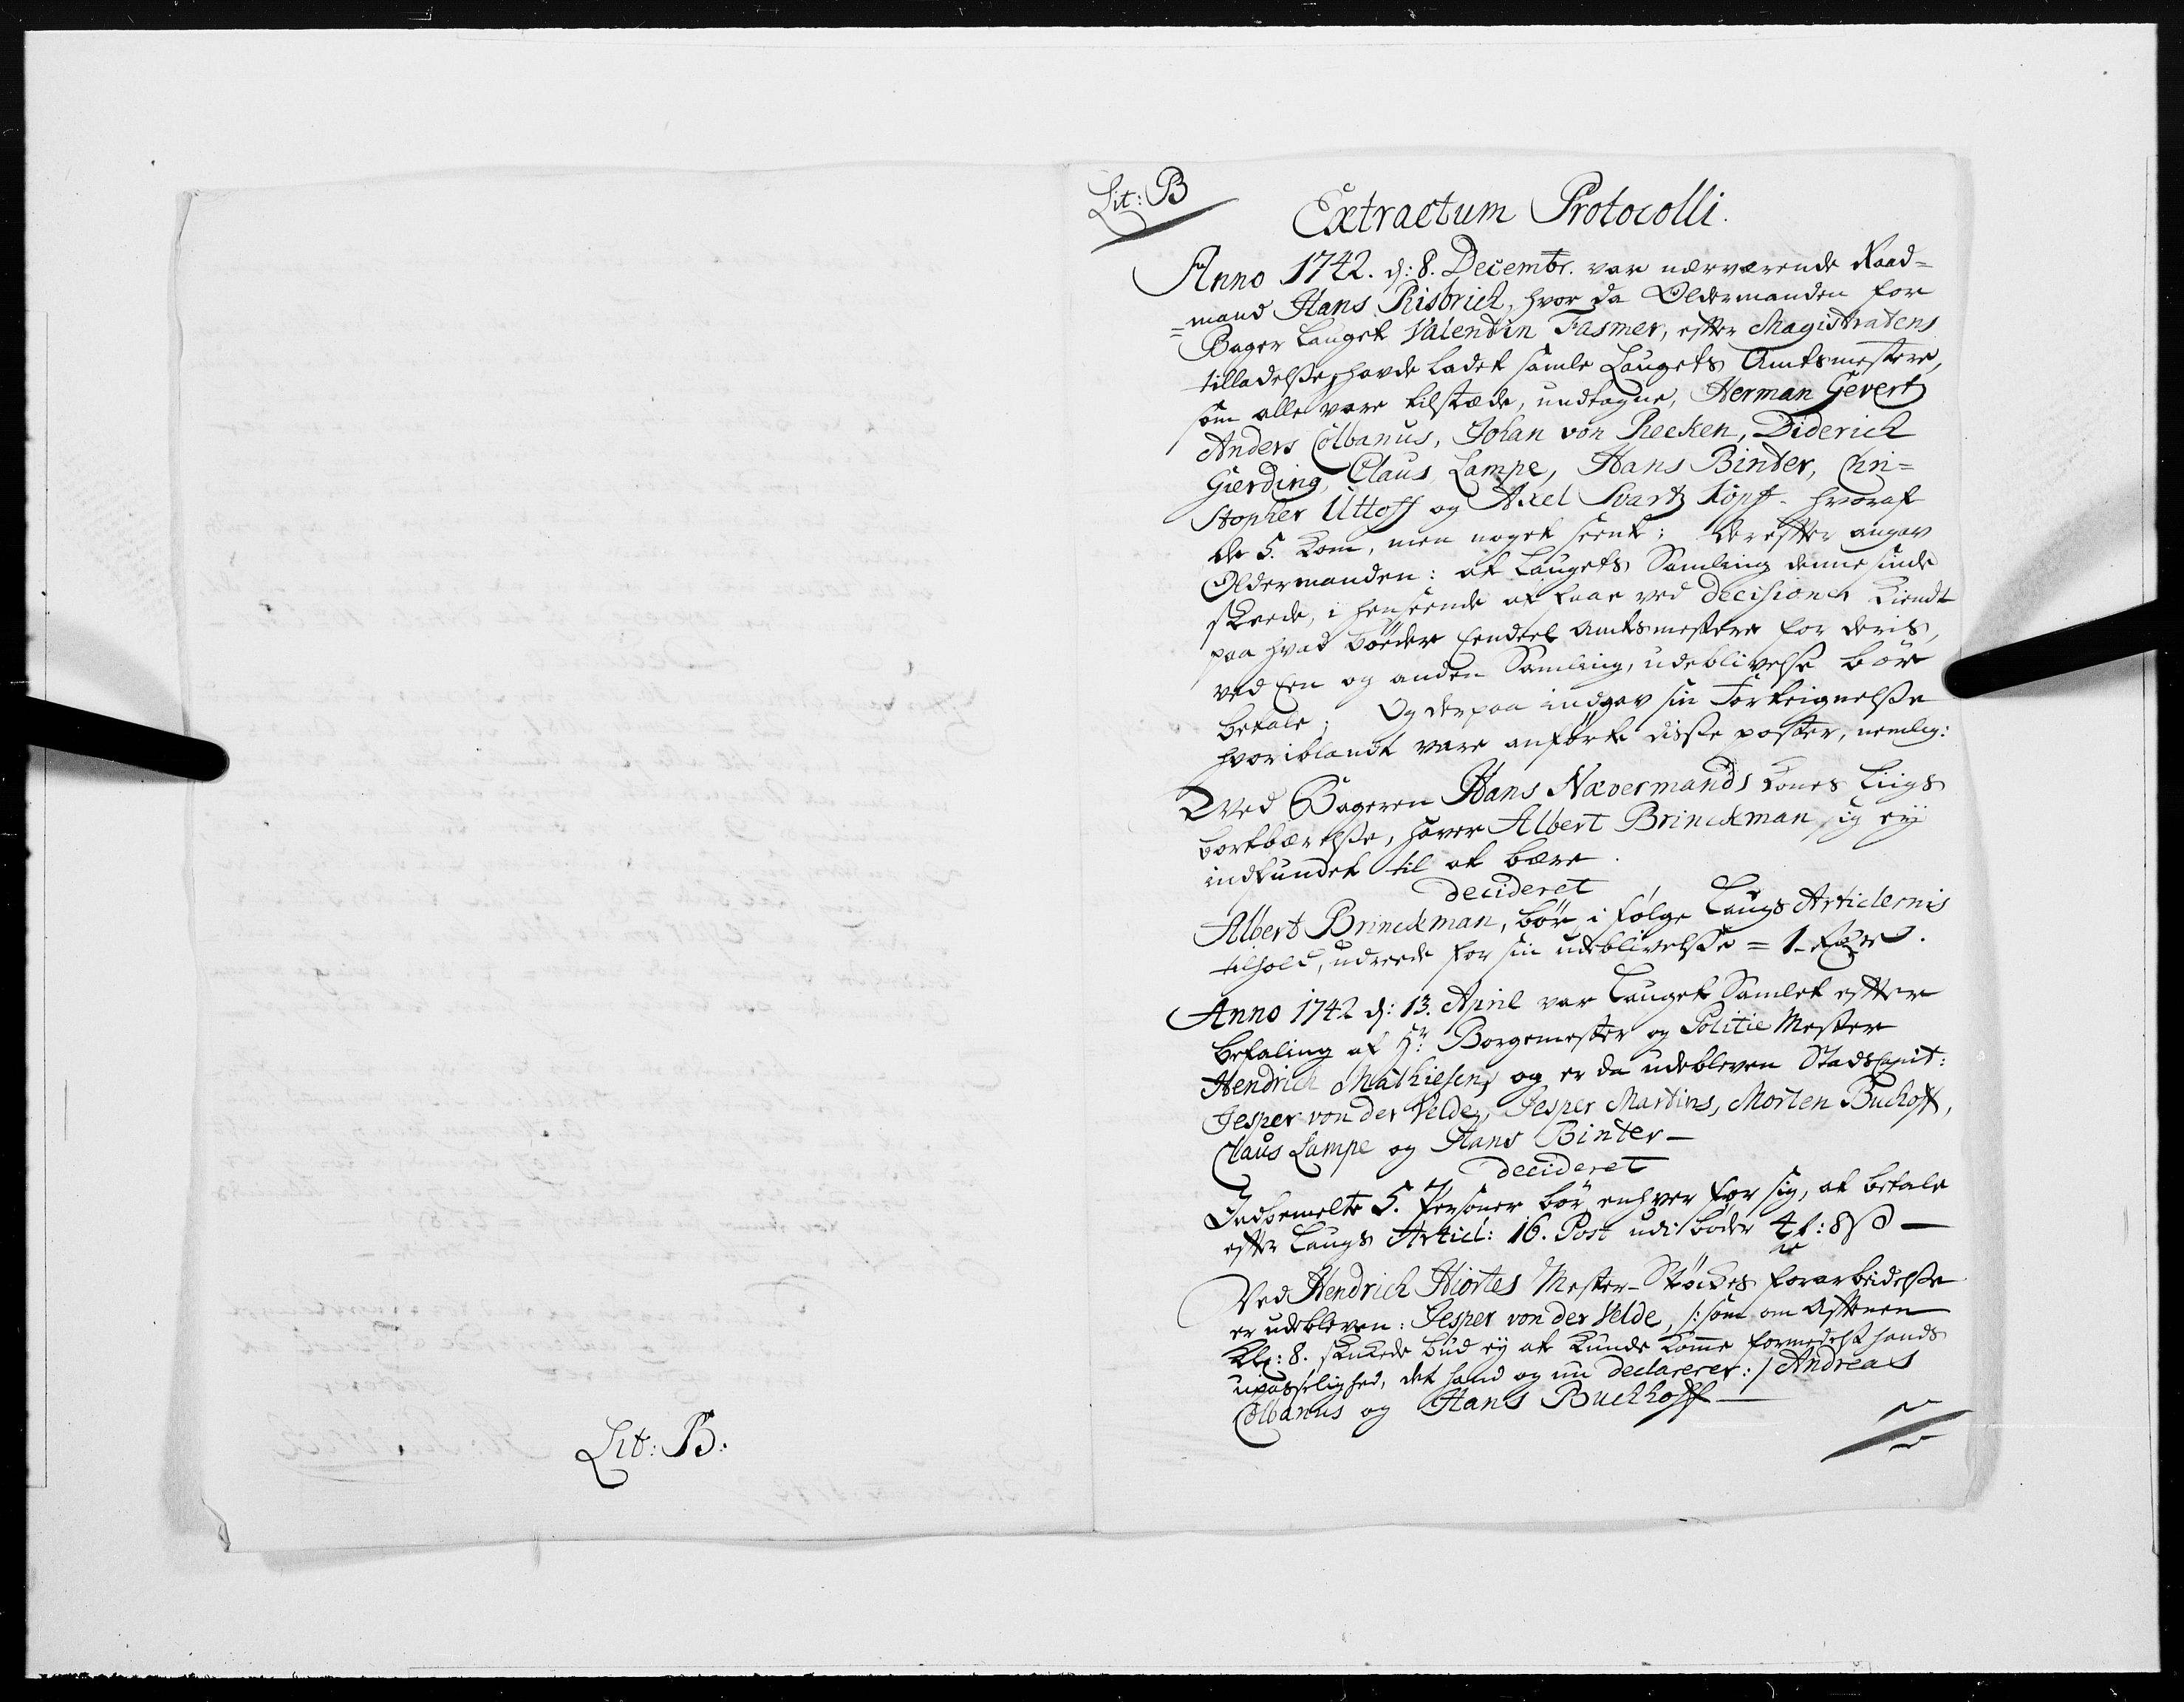 Lit: B.
Lit: B
Extractum Protocolli.
Anno 1742. d: 8. Decembr. var nærværende Raad=
=mand Hans Risbrich, hvor da Oldermanden for
Bager Lauget Valentin Fasmer, efter Magistratens
tilladelsse, havde ladet samle Laugets Amtsmestere,
som alle vare tilstæde, undtagne, Herman Gevert
Anders Colbanus, Johan von Recken, Diderich
Gierding, Claus Lampe, Hans Binter, Chri=
stopher Uttoff og Axel Svartz Kopff. hvoraf
de 5. kom, men noget seent; derefter angav
Oldermanden: at Laugets Samling denne sinde
skeede, i henseende at faae ved Decisioner kiendt
paa hvad bøeder Eendeel Amtsmestere for deris,
ved Een og anden Samling, udeblivelse bør
betale; Og derpaa indgav sin Forteignelsse
hvoriblandt vare anførte disse poster, nemlig:
Ved Bageren Hans Nævermands Kones Liigs
bortbærelsse, haver Albert Brinckman sig eÿ
indfundet til at bære.
decideret
Albert Brinckman, bør, i følge Laugs Articlernis
tilhold, udreede for sin udeblivelsse = 1 rdr.
Anno 1742 d: 13. April var Lauget Samlet efter
befaling af Hr: Borgemester og Politie Mester
Hendrich Mathiesen, og er da udebleven Stadscapit:
Jesper von der Velde, Jesper Martins, Morten Buchoff,
Claus Lampe og Hans Binter—
decideret
Indbemelte 5. Personer bør enhver for sig, at betale
efter Laugs Articl: 16. Post udi bøder 4 ₰: 8 ß —
Ved Hendrich Hiortes Mester-Støckes forarbeidelsse
er udebleven: Jesper von der Velde, /: som om Aftenen
Kl: 8. skickede bud eÿ at kunde komme formedelst hands
upasselighed, det hand og nu declarerer: / Andreas
Colbanus og Hans Buchhoff—